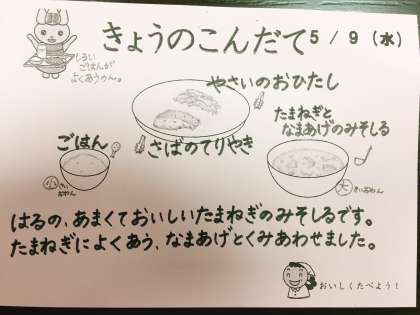 きょうのこんだて 5/9(水)
しろい
ごはんが
よくあうゥん。
やさいのおひたし
たまねぎと、
なまあげのみそしる
ごはん
さばのてりやき
小さい
おわん
大きいおわん
はるの、あまくておいしいたまねぎのみそしるです。
たまねぎによくあう、なまあげとくみあわせました。
おいしくたべよう!